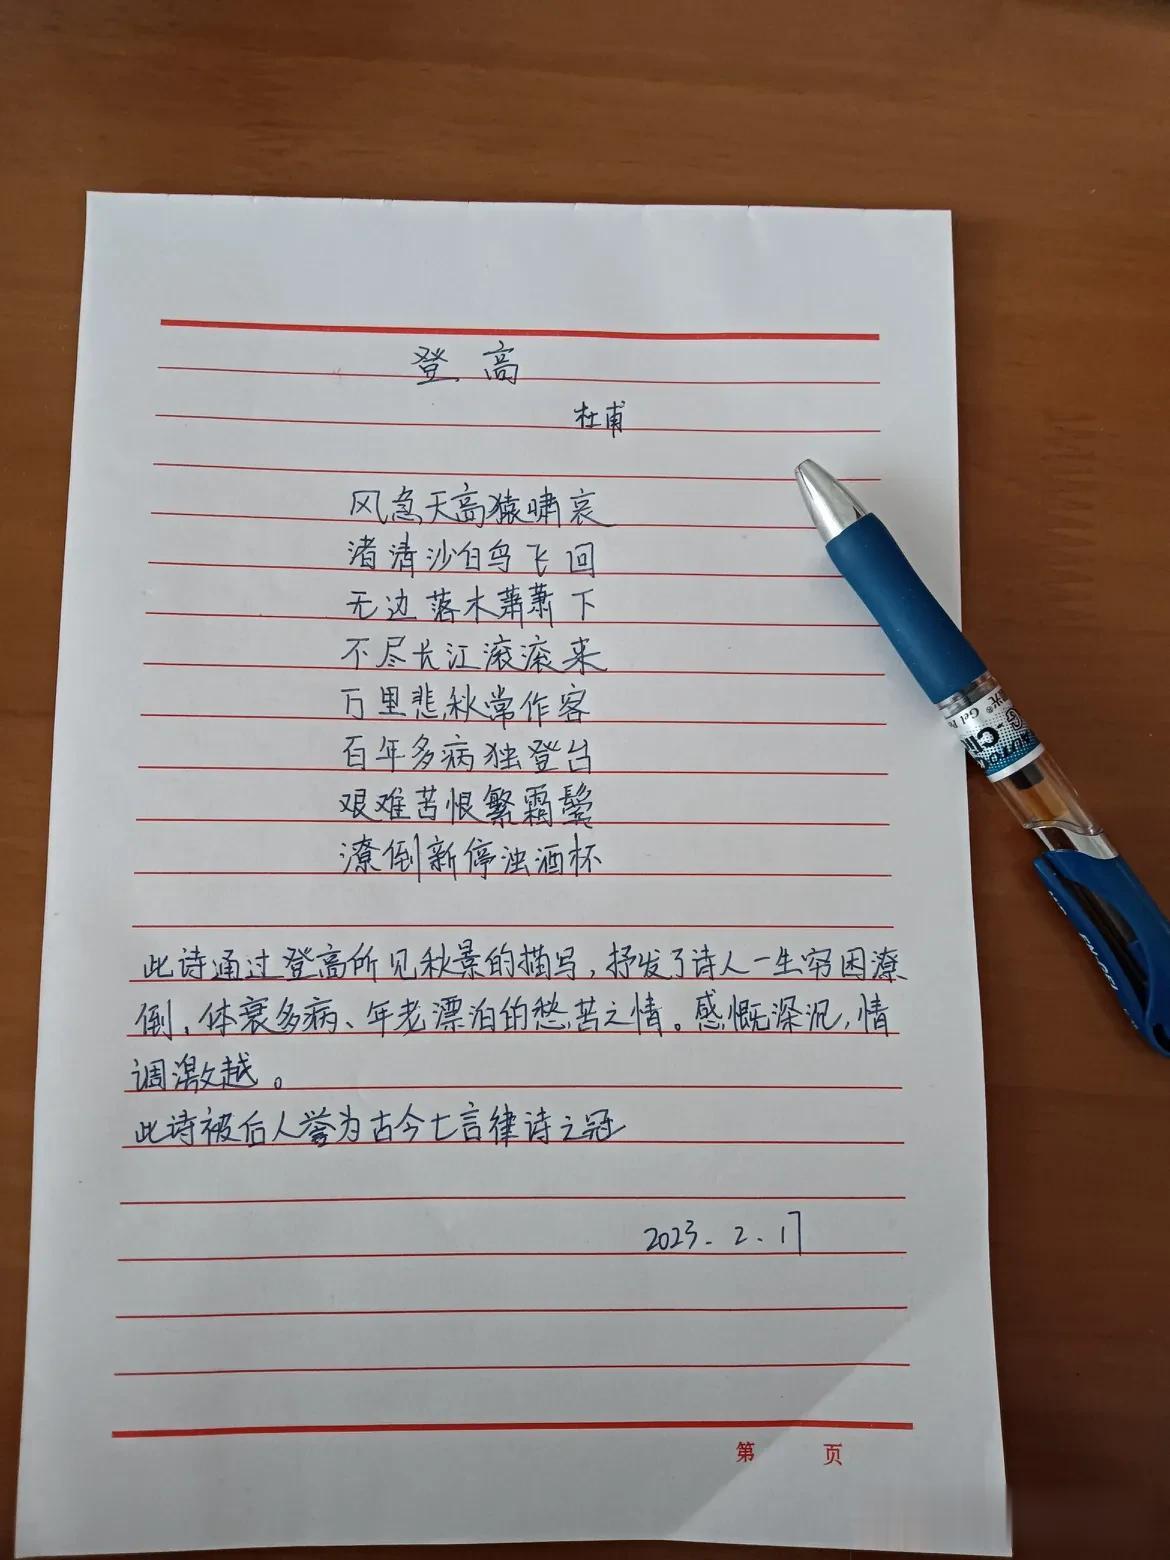 登高
杜甫
风急天高猿啸哀
渚清沙白鸟飞回
无边落木萧萧下
不尽长江滚滚来
万里悲秋常作客
百年多病独登台
艰难苦恨繁霜鬓
潦倒新停浊酒杯
此诗通过登高所见秋景的描写，抒发了诗人一生穷困潦
倒，体衰多病、年老漂泊的愁苦之情。感慨深沉，情
调激越。
此诗被后人誉为古今七言律诗之冠
2023.2.17
第 页